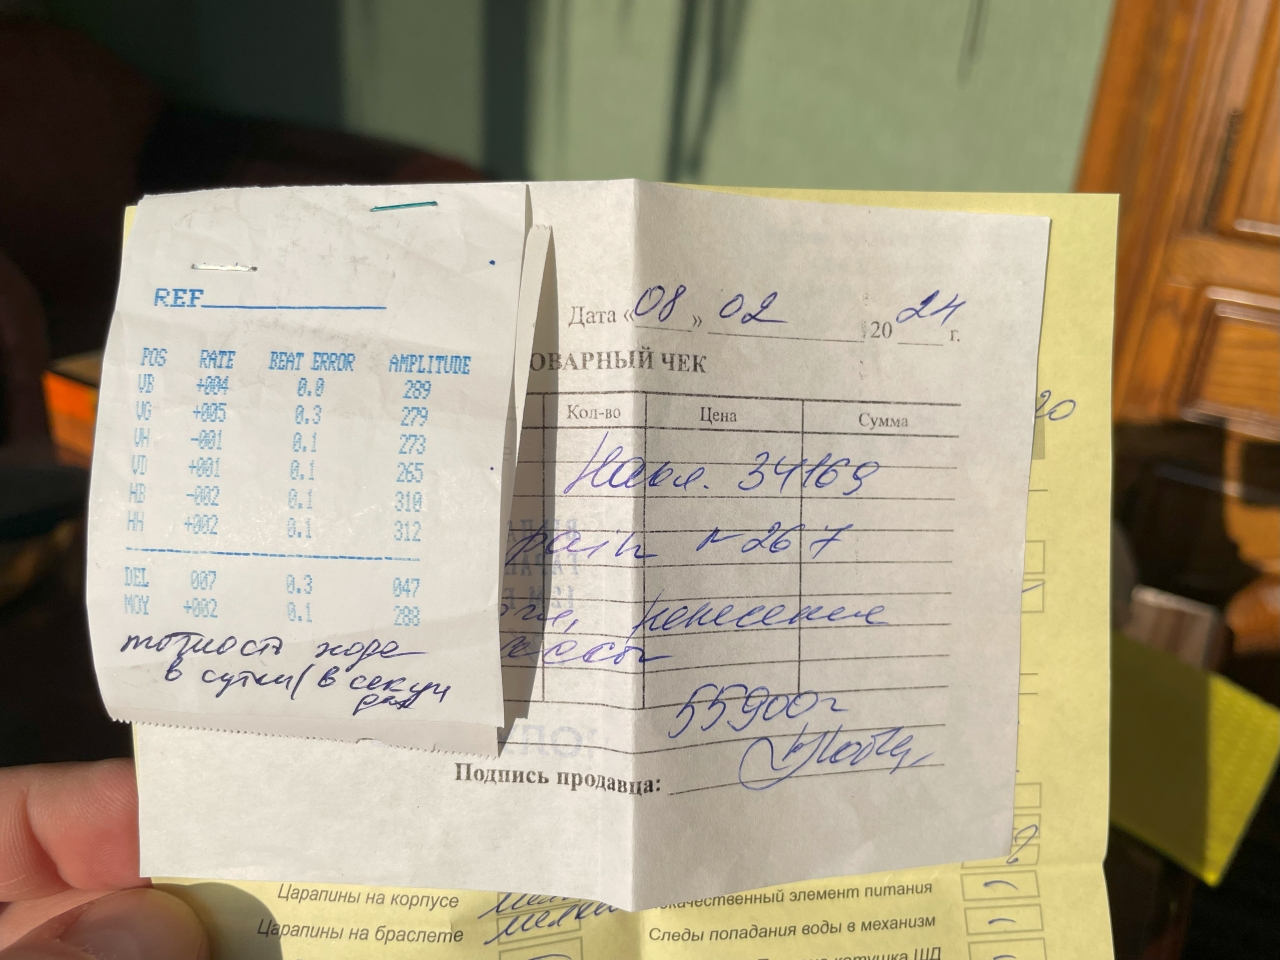 REF
POS RATE BEAT ERROR AMPLITUDE
VB +004 0.0 289
VG +005 0.3 279
VH -001 0.1 273
VD +001 0.1 265
HB -002 0.1 310
HH +002 0.1 312
DEL 007 0.3 047
MOY +002 0.1 288
точность хода
в сутки (в секун
дах
Дата «08» 02 2024 г.
ОВАРНЫЙ ЧЕК
Кол-во Цена Сумма
Накл. 34169
№ 267
нанесение
55900
Подпись продавца:
20
Царапины на корпусе
Царапины на браслете мелки
качественный элемент питания
Следы попадания воды в механизм
катушка ШД